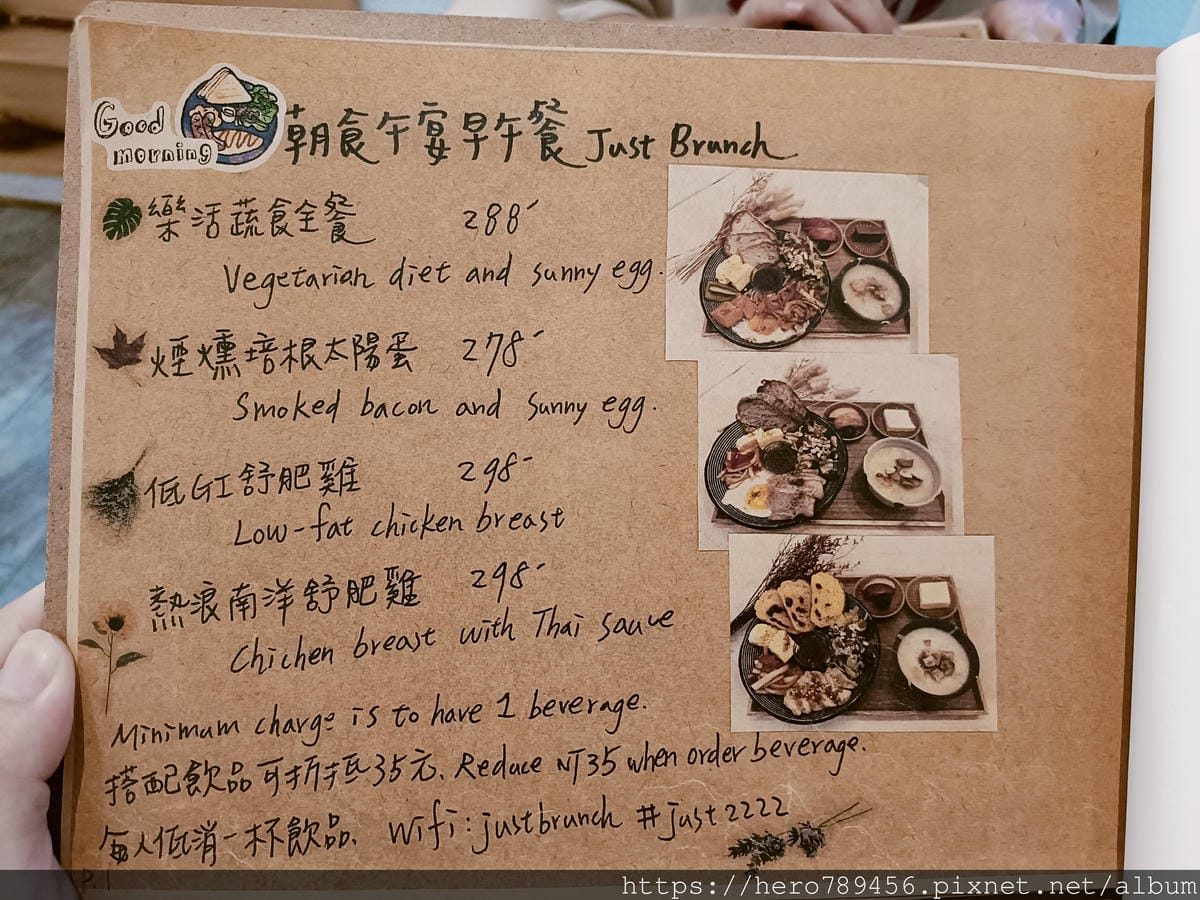 Good
morning
朝食午宴早午餐 Just Brunch
樂活蔬食全餐 288-
Vegetarian diet and sunny egg.
煙燻培根太陽蛋 278-
Smoked bacon and sunny egg.
低GI舒肥雞 298-
Low-fat chicken breast
熱浪南洋舒肥雞 298-
Chichen breast with Thai sauce
Minimum charge is to have 1 beverage.
搭配飲品可折抵35元. Reduce NT35 when order beverage.
每人低消一杯飲品. Wifi:justbrunch #just2222
P.1
https://hero789456.pixnet.net/album